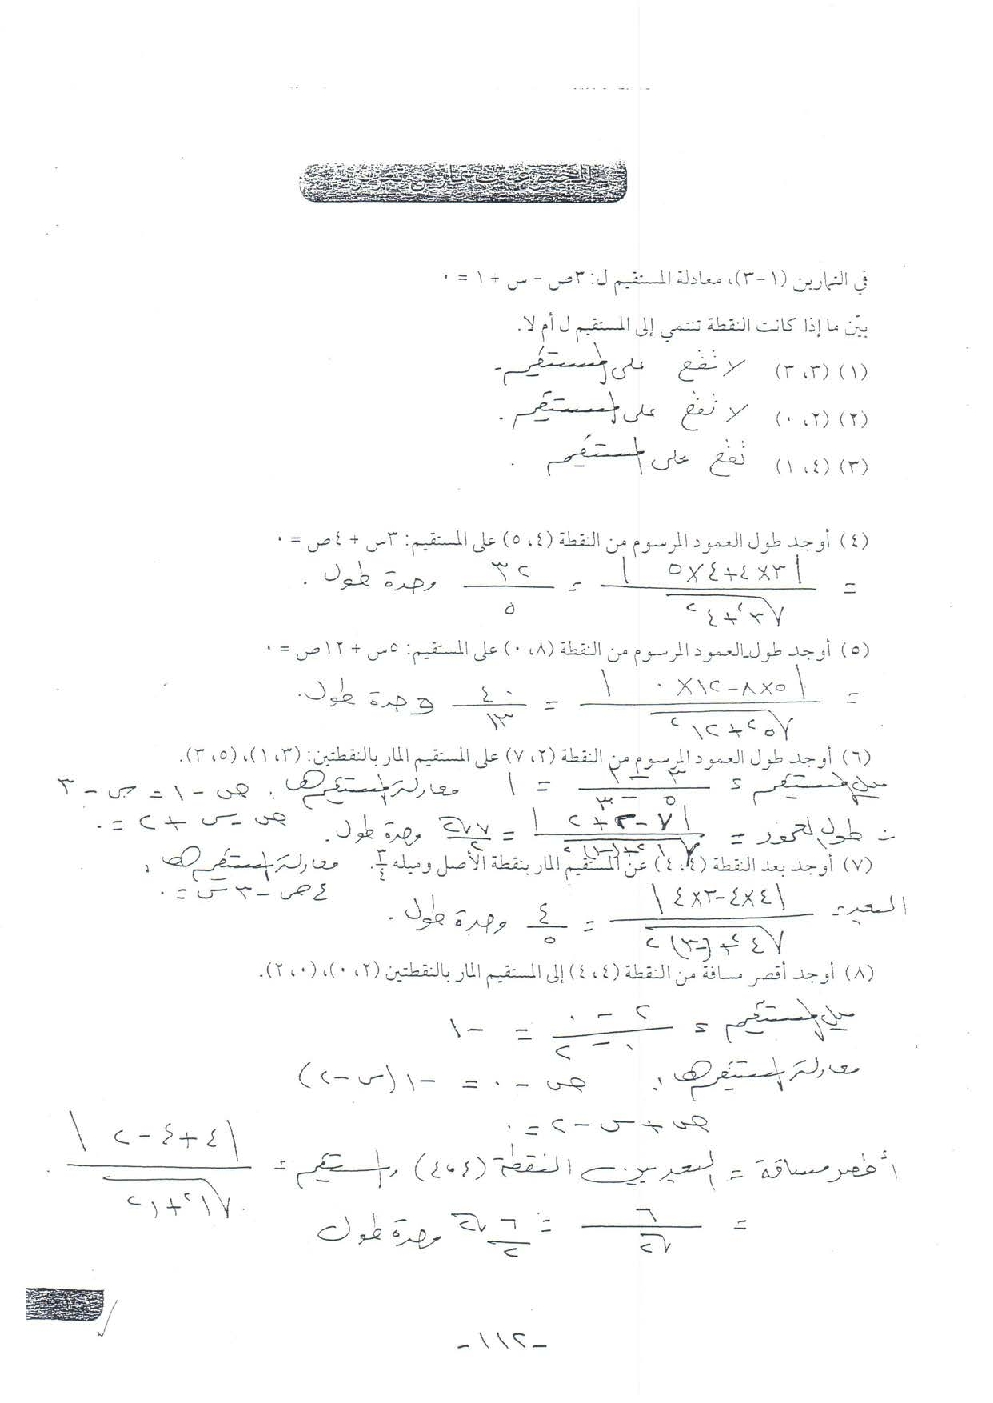 في التمارين (١-٣)، معادلة المستقيم ل: ٣ص - س + ١ = ٠
بيّن ما إذا كانت النقطة تنتمي إلى المستقيم ل أم لا.
(١) (٣، ٣) لا تقع على المستقيم.
(٢) (٢، ٠) لا تقع على المستقيم.
(٣) (٤، ١) تقع على المستقيم.
(٤) أوجد طول العمود المرسوم من النقطة (٤، ٥) على المستقيم: ٣س + ٤ص = ٠
= |٣×٤+٤×٥| / √(٣²+٤²) = ٣٢/٥ وحدة طول.
(٥) أوجد طول العمود المرسوم من النقطة (٨، ٠) على المستقيم: ٥س + ١٢ص = ٠
= |٥×٨-١٢×٠| / √(٥²+١٢²) = ٤٠/١٣ وحدة طول.
(٦) أوجد طول العمود المرسوم من النقطة (٢، ٧) على المستقيم المار بالنقطتين: (٣، ١)، (٥، ٣).
ميل المستقيم = (٣-١)/(٥-٣) = ١ معادلة المستقيم هي: ص - ١ = س - ٣
ص - س + ٢ = ٠
∴ طول العمود = |٧-٢+٢| / √(١²+(-١)²) = ٧√٢/٢ وحدة طول.
(٧) أوجد بعد النقطة (٤، ٤) عن المستقيم المار بنقطة الأصل وميله ٣/٤. معادلة المستقيم هي:
٤ص - ٣س = ٠
البعد = |٤×٤-٣×٤| / √(٤²+(-٣)²) = ٤/٥ وحدة طول.
(٨) أوجد أقصر مسافة من النقطة (٤، ٤) إلى المستقيم المار بالنقطتين (٢، ٠)، (٠، ٢).
ميل المستقيم = (٢-٠)/(٠-٢) = -١
معادلة المستقيم هي: ص - ٠ = -١(س-٢)
ص + س - ٢ = ٠
أقصر مسافة = البعد بين النقطة (٤،٤) والمستقيم = |٤+٤-٢| / √(١²+١²).
= ٦/√٢ = ٦√٢/٢ وحدة طول
-١١٢-